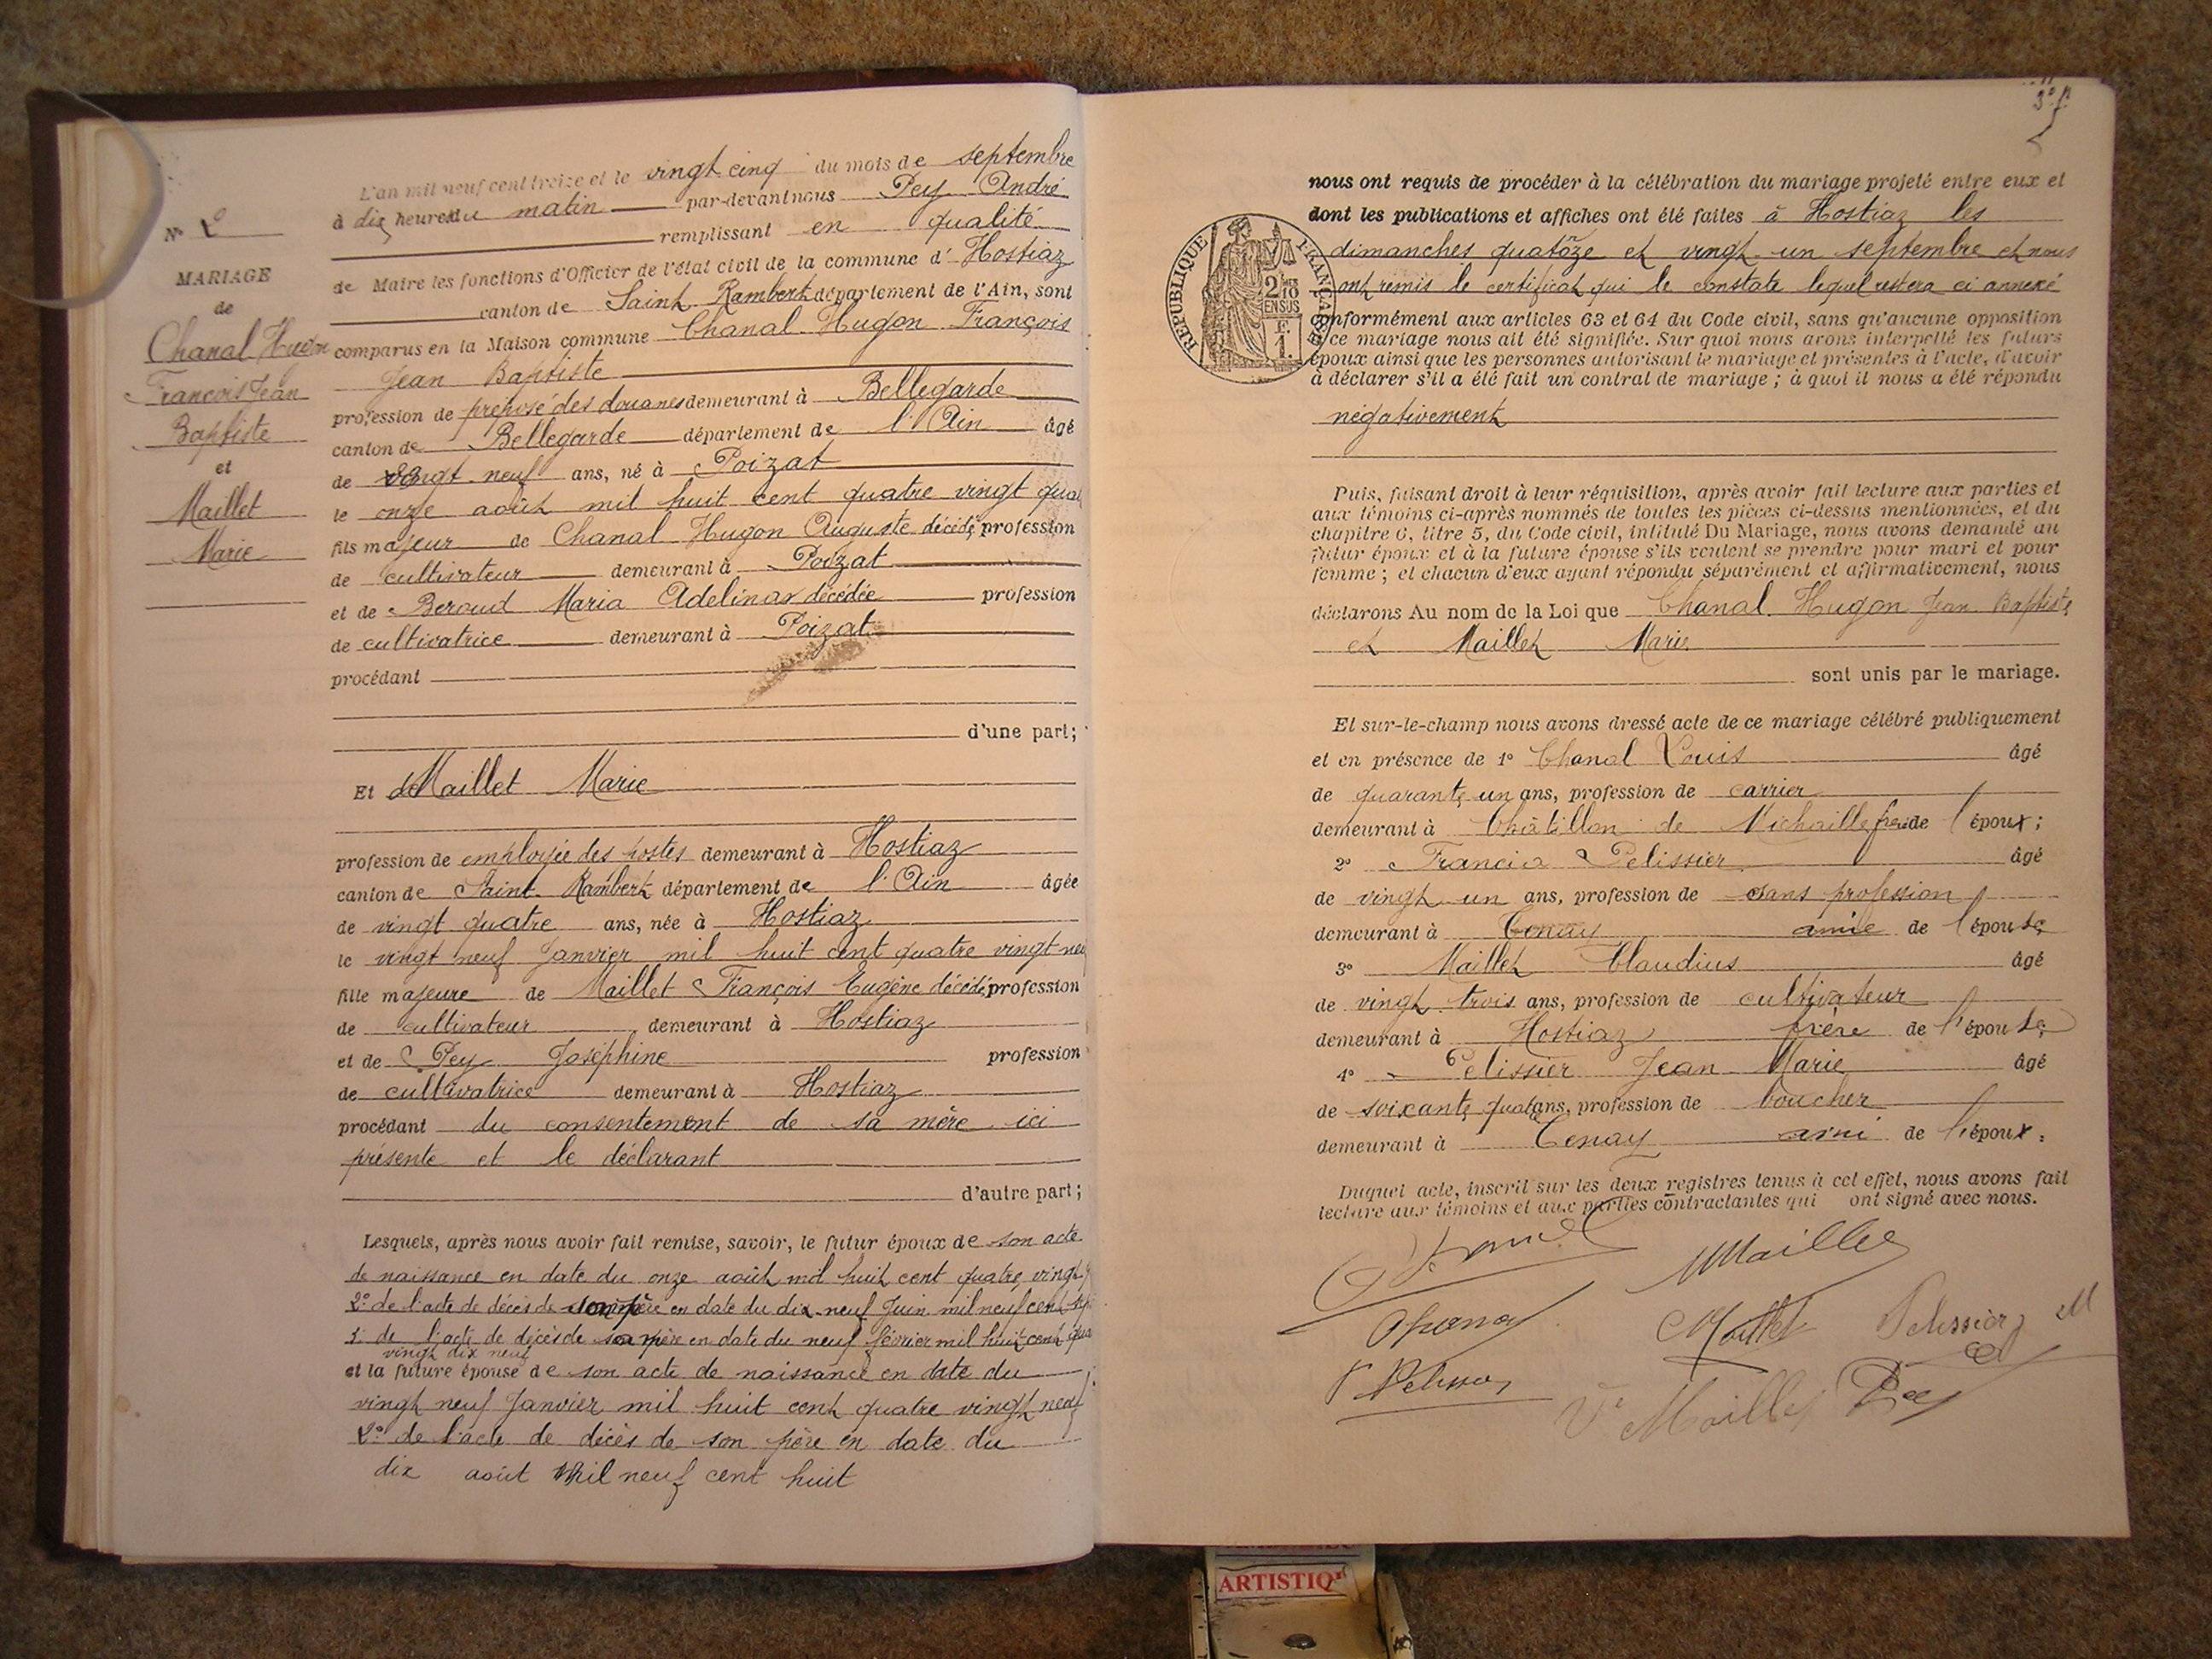 L'an mil neuf cent treize et le vingt cinq du mois de septembre
à dix heures du matin par-devant nous Pey André
remplissant en qualité
de Maire les fonctions d'Officier de l'état civil de la commune d' Hostiaz
canton de Saint Rambert département de l'Ain, sont
comparus en la Maison commune Chanal Hugon François
Jean Baptiste
profession de préposé des douanes demeurant à Bellegarde
canton de Bellegarde département de l'Ain âgé
de vingt neuf ans, né à Poizat
le onze août mil huit cent quatre vingt qua
fils majeur de Chanal Hugon Auguste décédé profession
de cultivateur demeurant à Poizat
et de Beroud Maria Adelina décédée profession
de cultivatrice demeurant à Poizat
procédant
d'une part;
N° 2
MARIAGE
de
Chanal Hugon
François Jean
Baptiste
et
Maillet
Marie
Et de Maillet Marie
profession de employée des postes demeurant à Hostiaz
canton de Saint Rambert département de l'Ain âgée
de vingt quatre ans, née à Hostiaz
le vingt neuf Janvier mil huit cent quatre vingt neu
fille majeure de Maillet François Eugène décédé profession
de cultivateur demeurant à Hostiaz
et de Pey Joséphine profession
de cultivatrice demeurant à Hostiaz
procédant du consentement de sa mère ici
présente et le déclarant
d'autre part;
Lesquels, après nous avoir fait remise, savoir, le futur époux de son acte
de naissance en date du onze août mil huit cent quatre vingt
2° de l'acte de décès de père en date du dix neuf Juin mil neuf cent
de l'acte de décès de sa mère en date du neuf février mil huit cent qua
vingt dix neuf
et la future épouse de son acte de naissance en date du
vingt neuf Janvier mil huit cent quatre vingt neuf
2° de l'acte de décès de son père en date du
dix août mil neuf cent huit
3°
nous ont requis de procéder à la célébration du mariage projeté entre eux et
dont les publications et affiches ont été faites à Hostiaz les
dimanches quatorze et vingt un septembre et nous
ont remis le certificat qui le constate lequel restera ci annexé
conformément aux articles 63 et 64 du Code civil, sans qu'aucune opposition
à ce mariage nous ait été signifiée. Sur quoi nous avons interpellé les futurs
époux ainsi que les personnes autorisant le mariage et présentes à l'acte, d'avoir
à déclarer s'il a été fait un contrat de mariage; à quoi il nous a été répondu
négativement
RÉPUBLIQUE FRANÇAISE
2/10
EN SUS
F.
1.
Puis, faisant droit à leur réquisition, après avoir fait lecture aux parties et
aux témoins ci-après nommés de toutes les pièces ci-dessus mentionnées, et du
chapitre 6, titre 5, du Code civil, intitulé Du Mariage, nous avons demandé au
futur époux et à la future épouse s'ils veulent se prendre pour mari et pour
femme; et chacun d'eux ayant répondu séparément et affirmativement, nous
déclarons Au nom de la Loi que Chanal Hugon Jean Baptiste
et Maillet Marie
sont unis par le mariage.
Et sur-le-champ nous avons dressé acte de ce mariage célébré publiquement
et en présence de 1° Chanal Louis âgé
de quarante un ans, profession de carrier
demeurant à Châtillon de Michaille frère de l'époux;
2° Francia Pelissier âgé
de vingt un ans, profession de sans profession
demeurant à Tenay amie de l'épouse
3° Maillet Claudius âgé
de vingt trois ans, profession de cultivateur
demeurant à Hostiaz frère de l'épouse
4° Pelissier Jean Marie âgé
de soixante quatre ans, profession de boucher
demeurant à Tenay ami de l'époux.
Duquel acte, inscrit sur les deux registres tenus à cet effet, nous avons fait
lecture aux témoins et aux parties contractantes qui ont signé avec nous.
MMaillet
Chanal
CMaillet
Pelissier
F Pelissier
Ve Maillet
Pey
ARTISTIQ